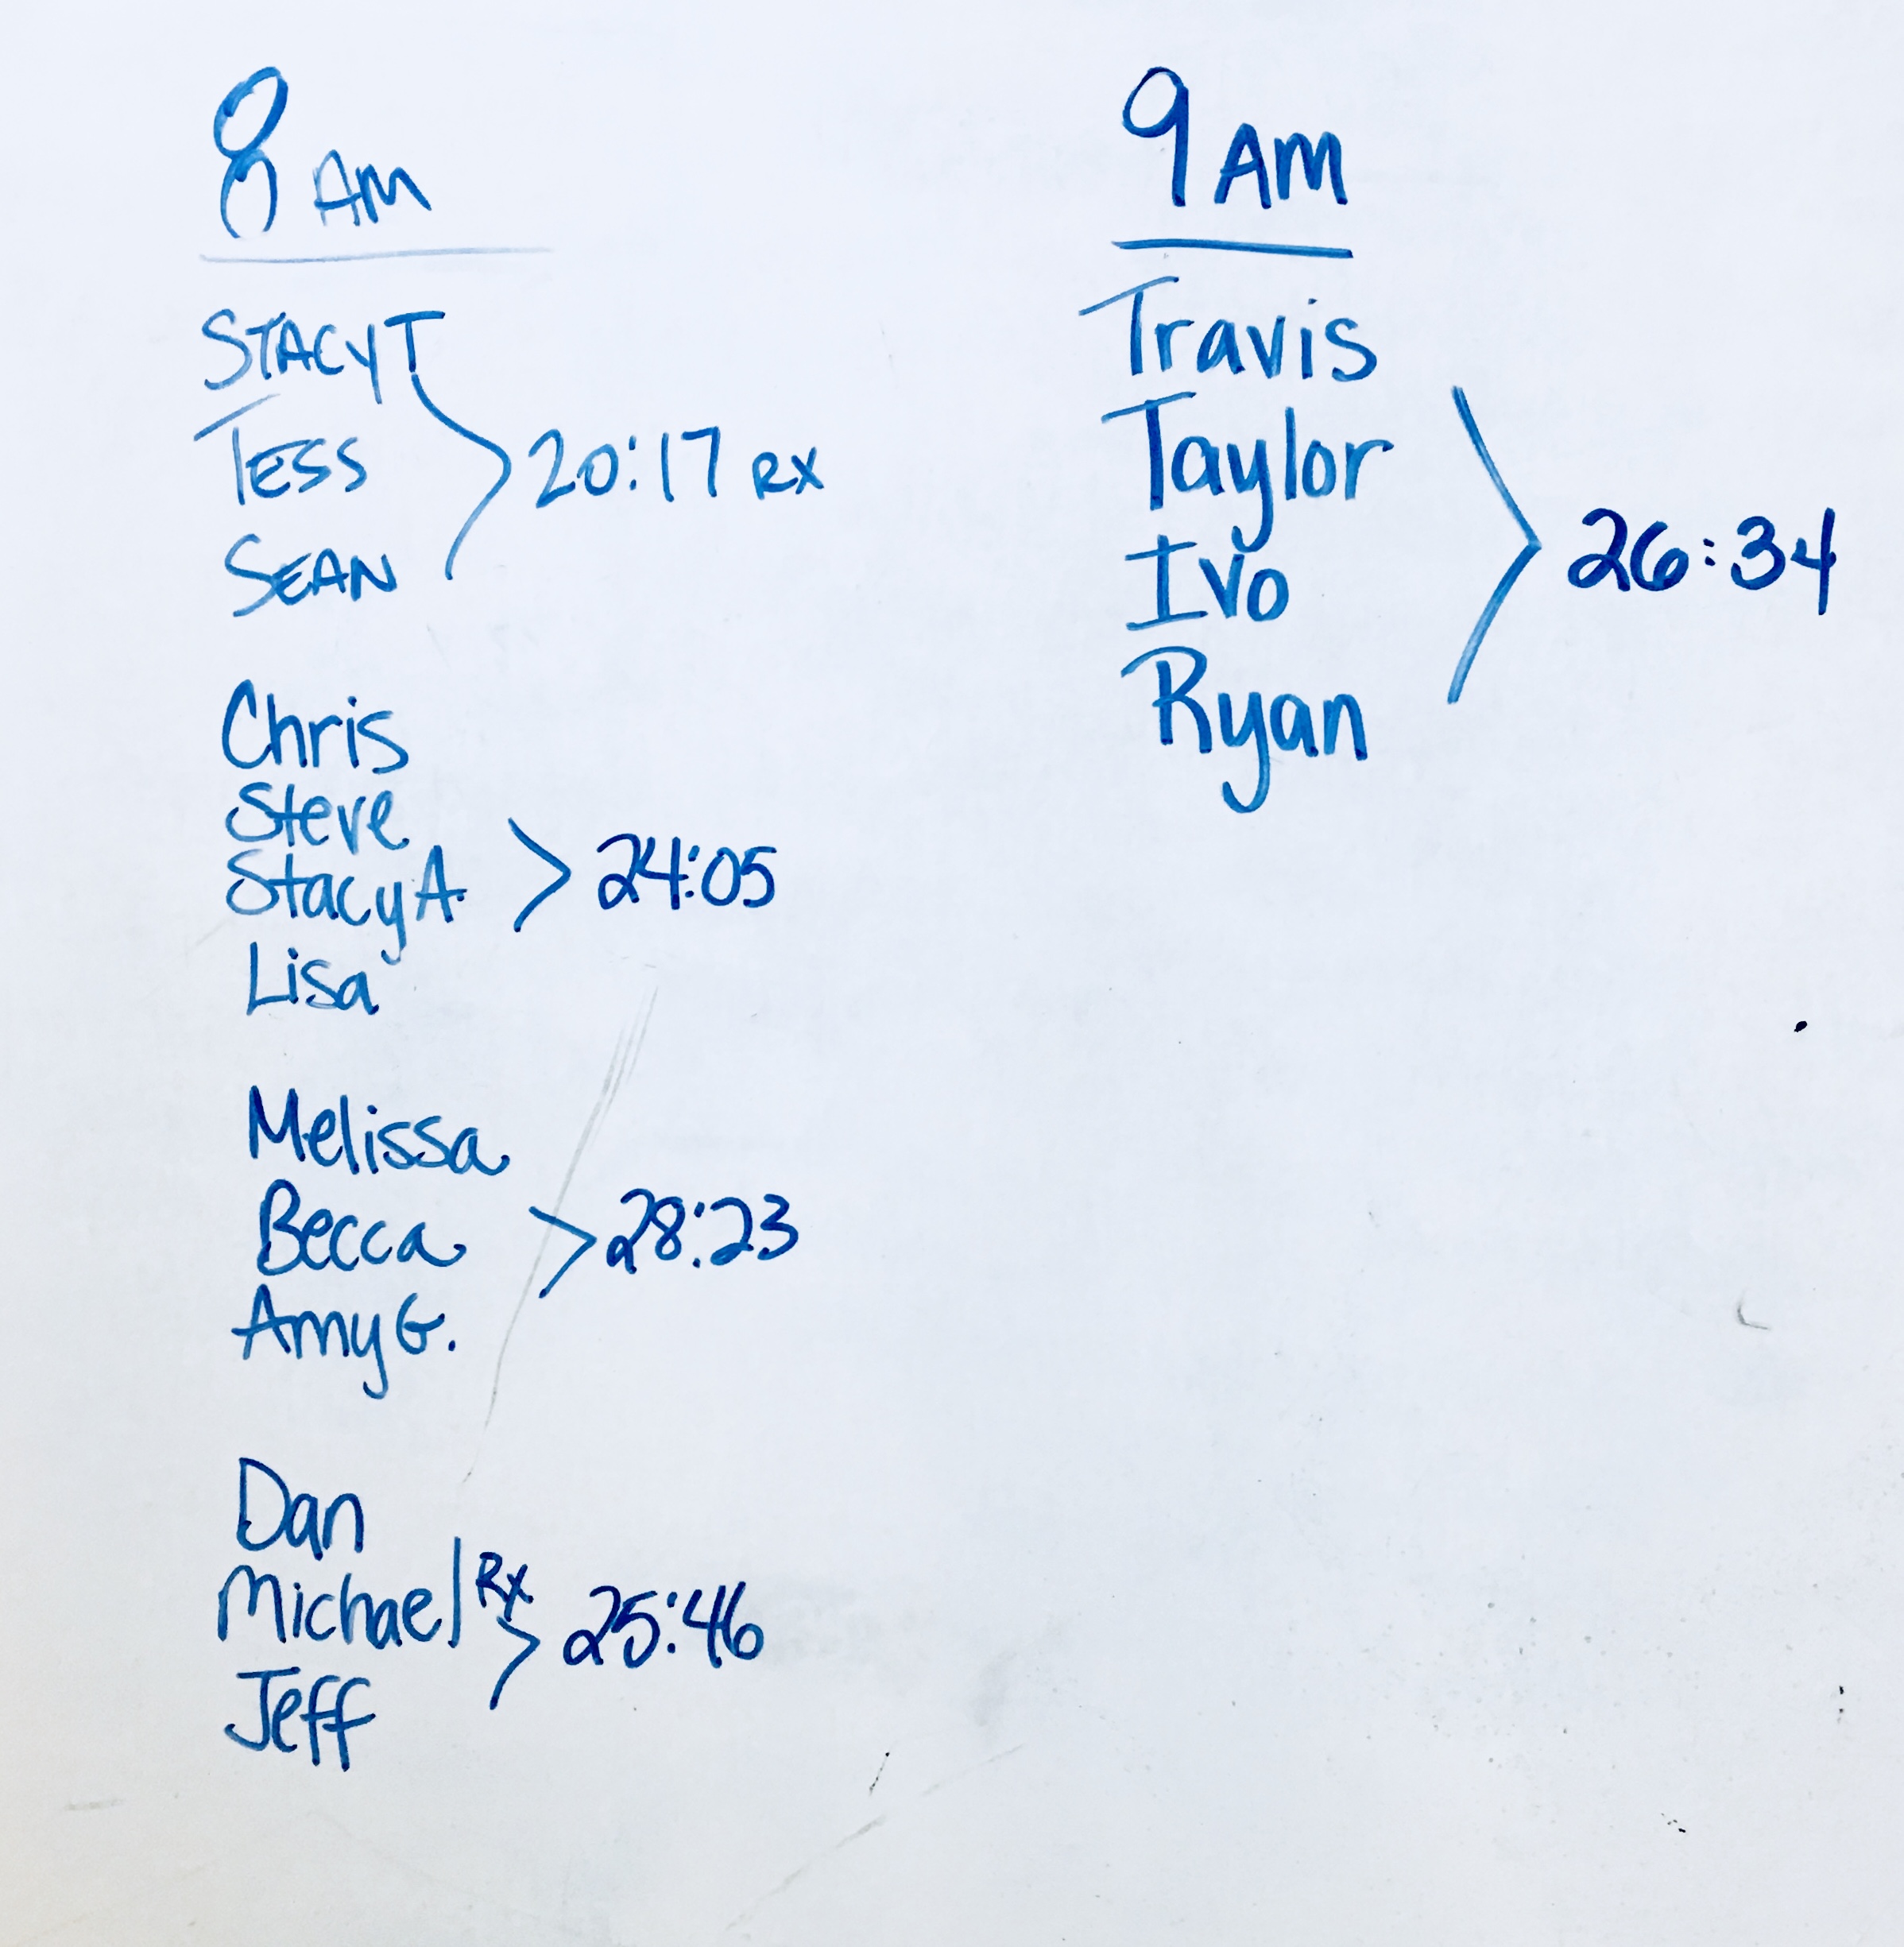 8 AM
STACY T
TESS
20:17 RX
SEAN
Chris
Steve
Stacy A.
24:05
Lisa
Melissa
Becca
28:23
Amy G.
Dan
Michael Rx
25:46
Jeff
9 AM
Travis
Taylor
Ivo
26:34
Ryan